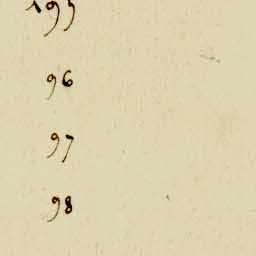 195
96
97
98